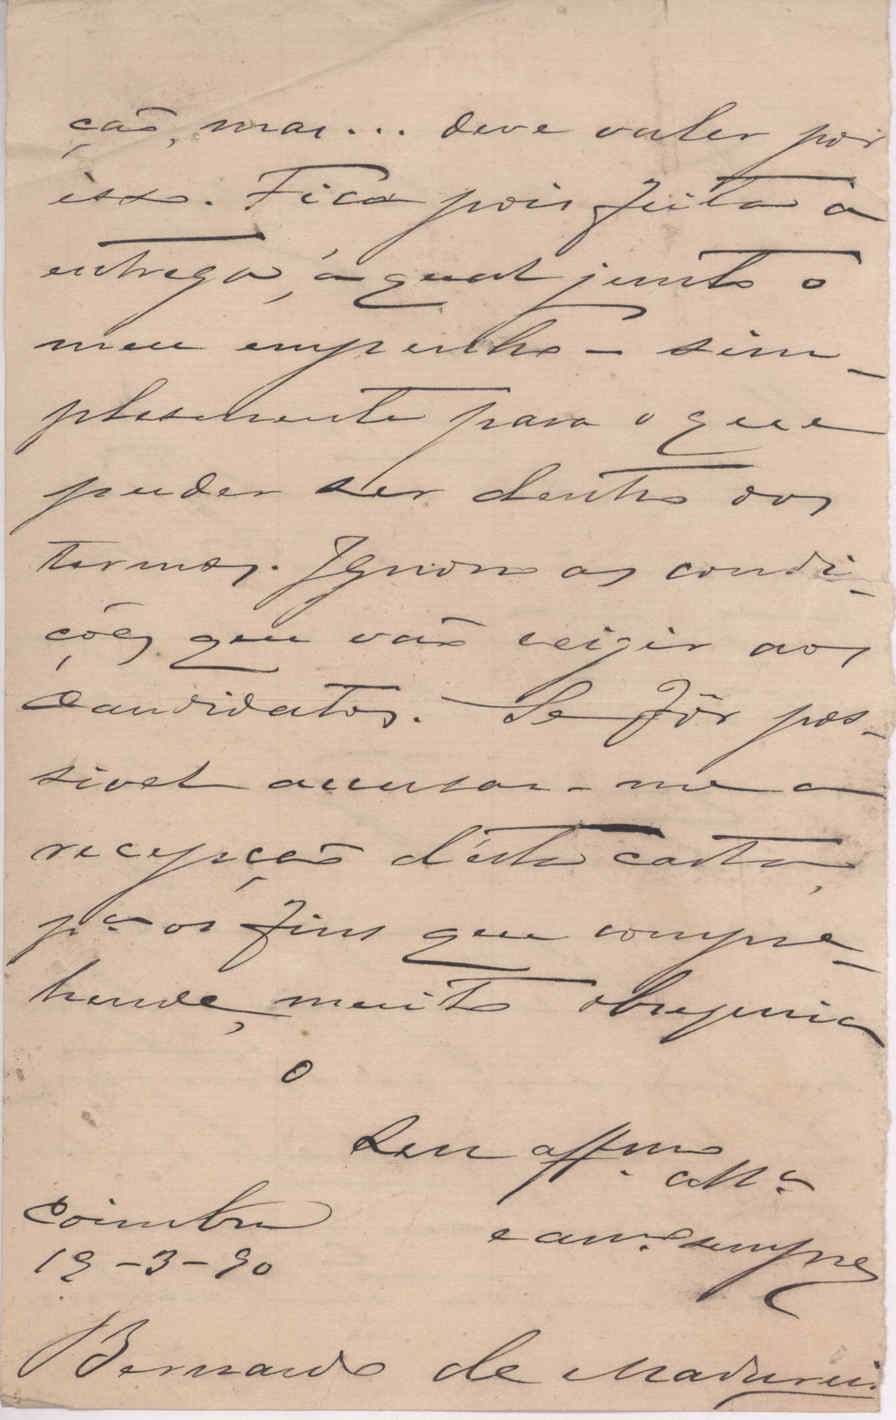 ção, mas... deve valer por
isso. Fica pois feita a
entrega, á qual junto o
meu empenho – sim-
plesmente para o que
puder ser dentro dos
termos. Ignoro as condi-
ções que vão exigir aos
candidatos. Se fôr pos-
sivel accusar-me a
recepção d'esta carta,
p.ª os fins que compre-
hende, muito obsequia
o
Seu aff.mo
e am.o sempre
Coimbra
19-3-90
Bernardo de Madurei.